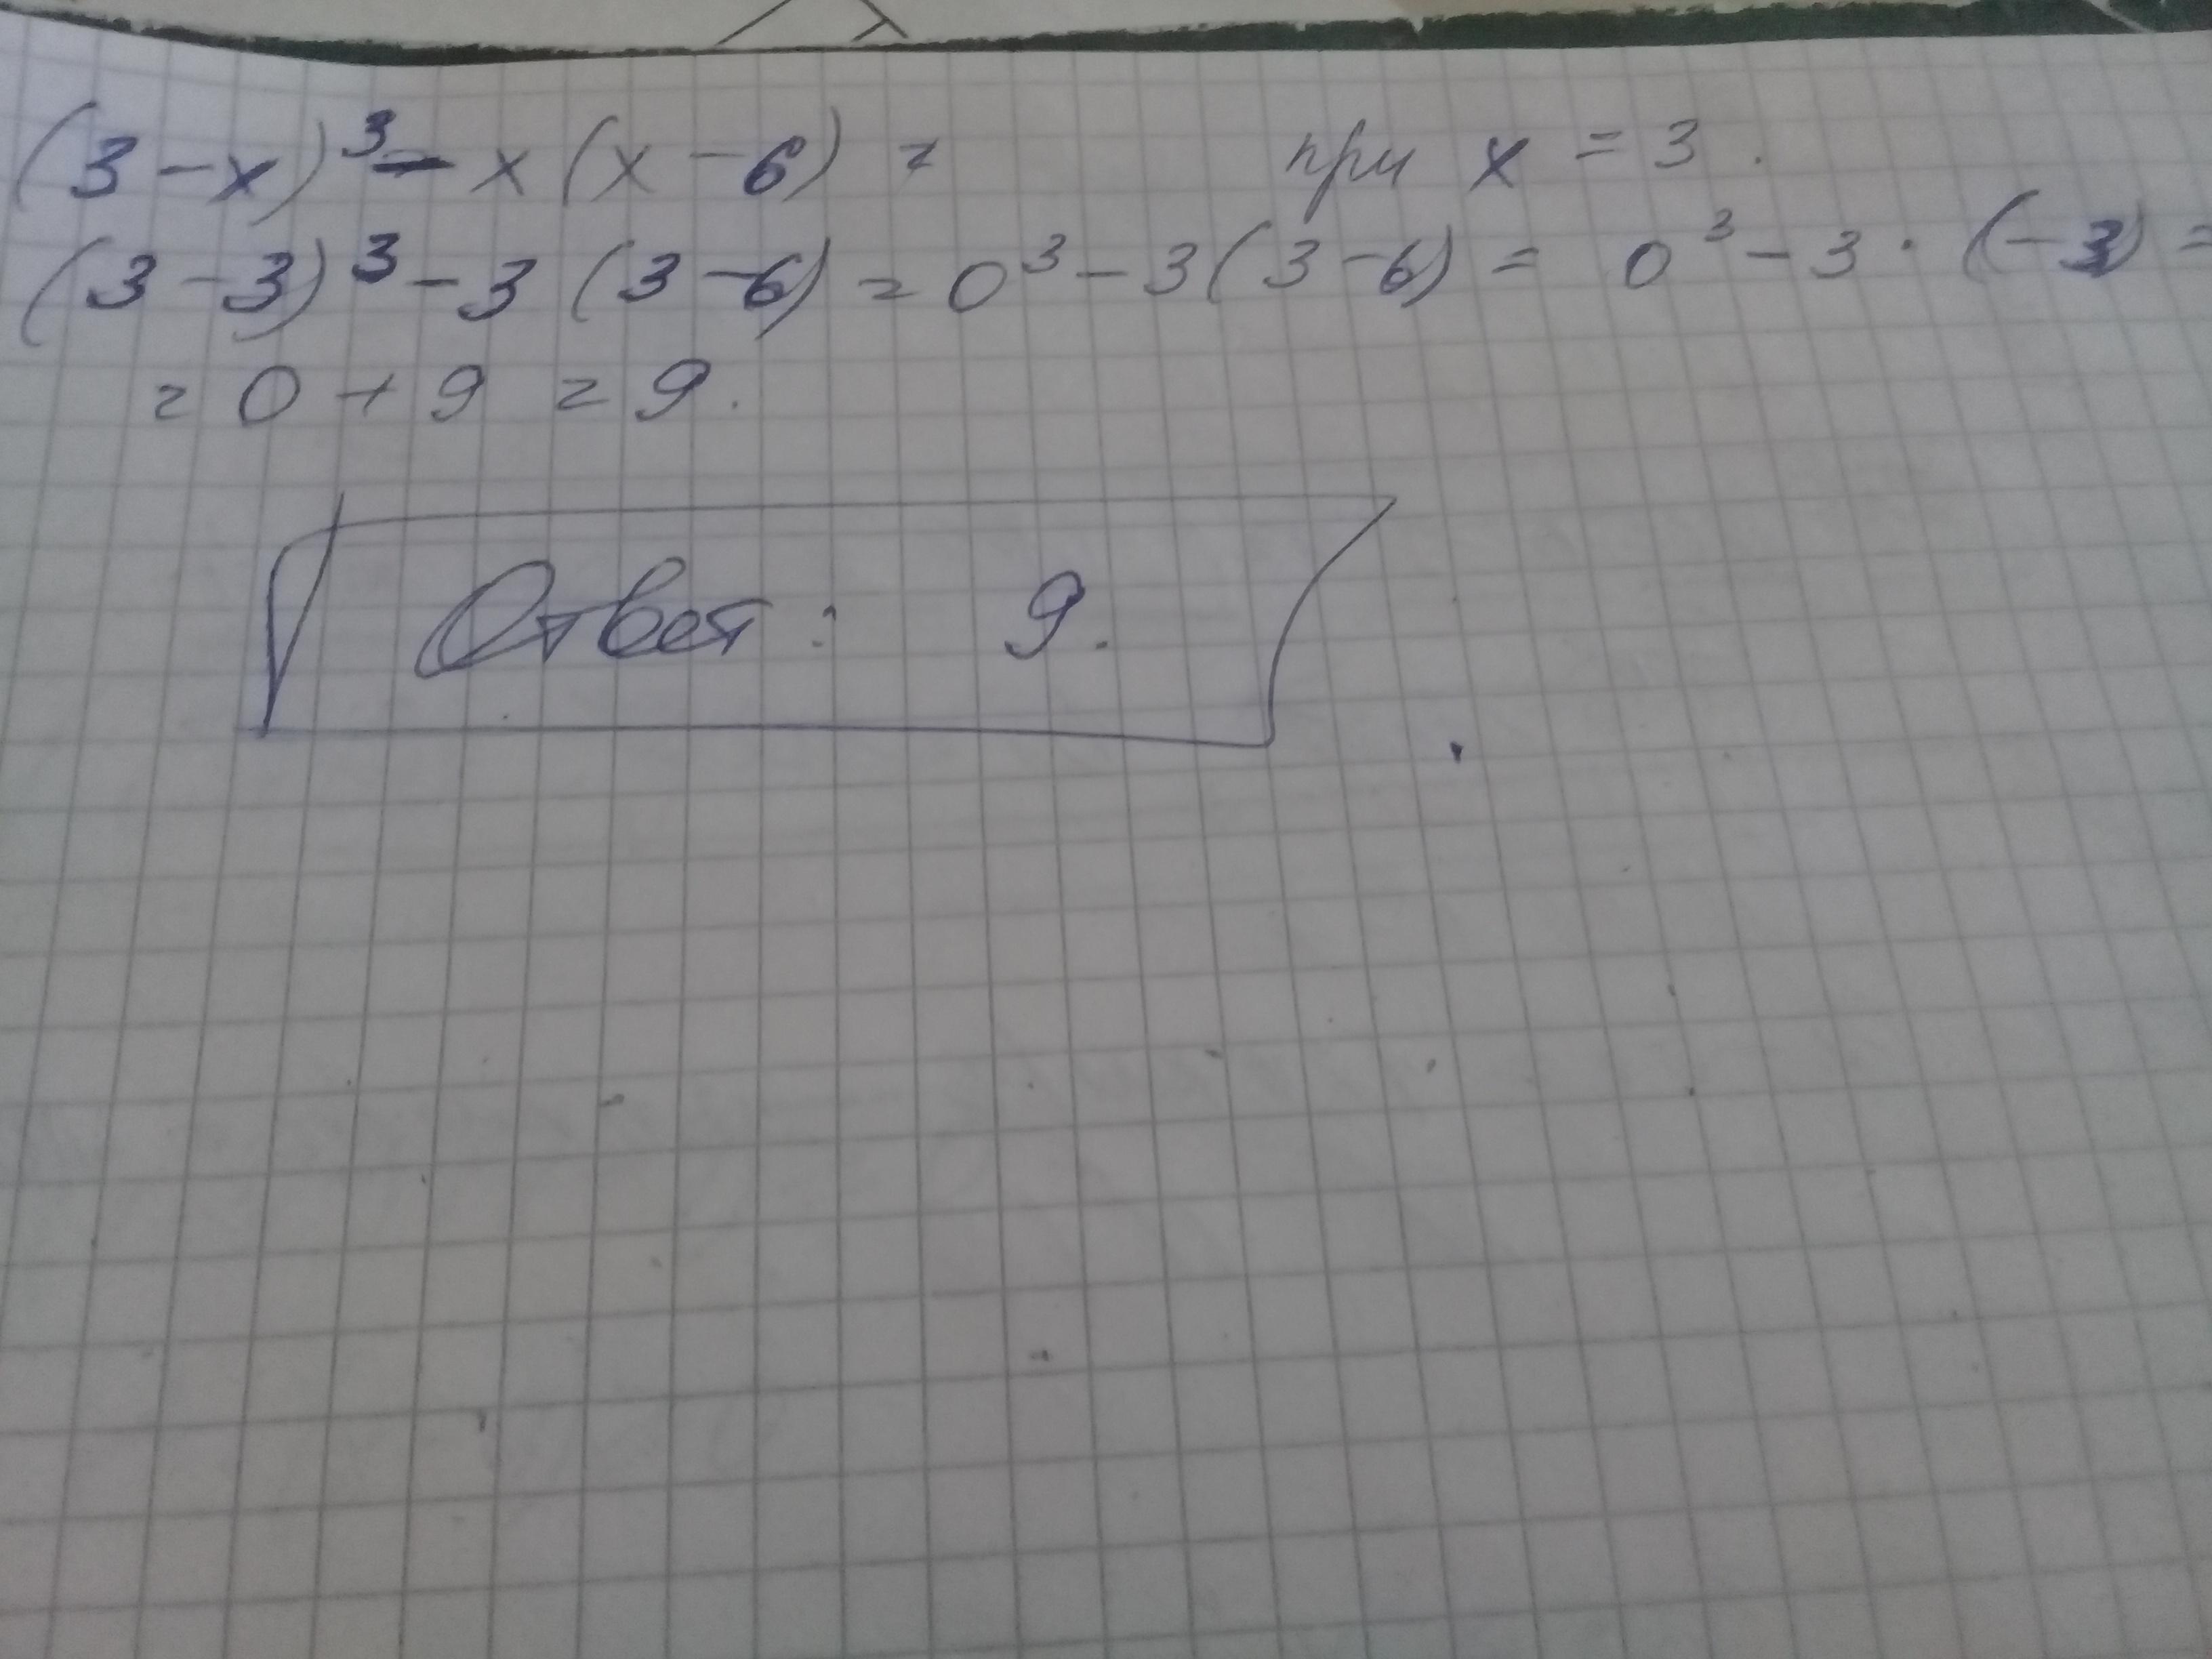 (3-x)³-x(x-6)= при x=3.
(3-3)³-3(3-6)=0³-3(3-6)=0³-3·(-3)=
=0+9=9.
Ответ: 9.